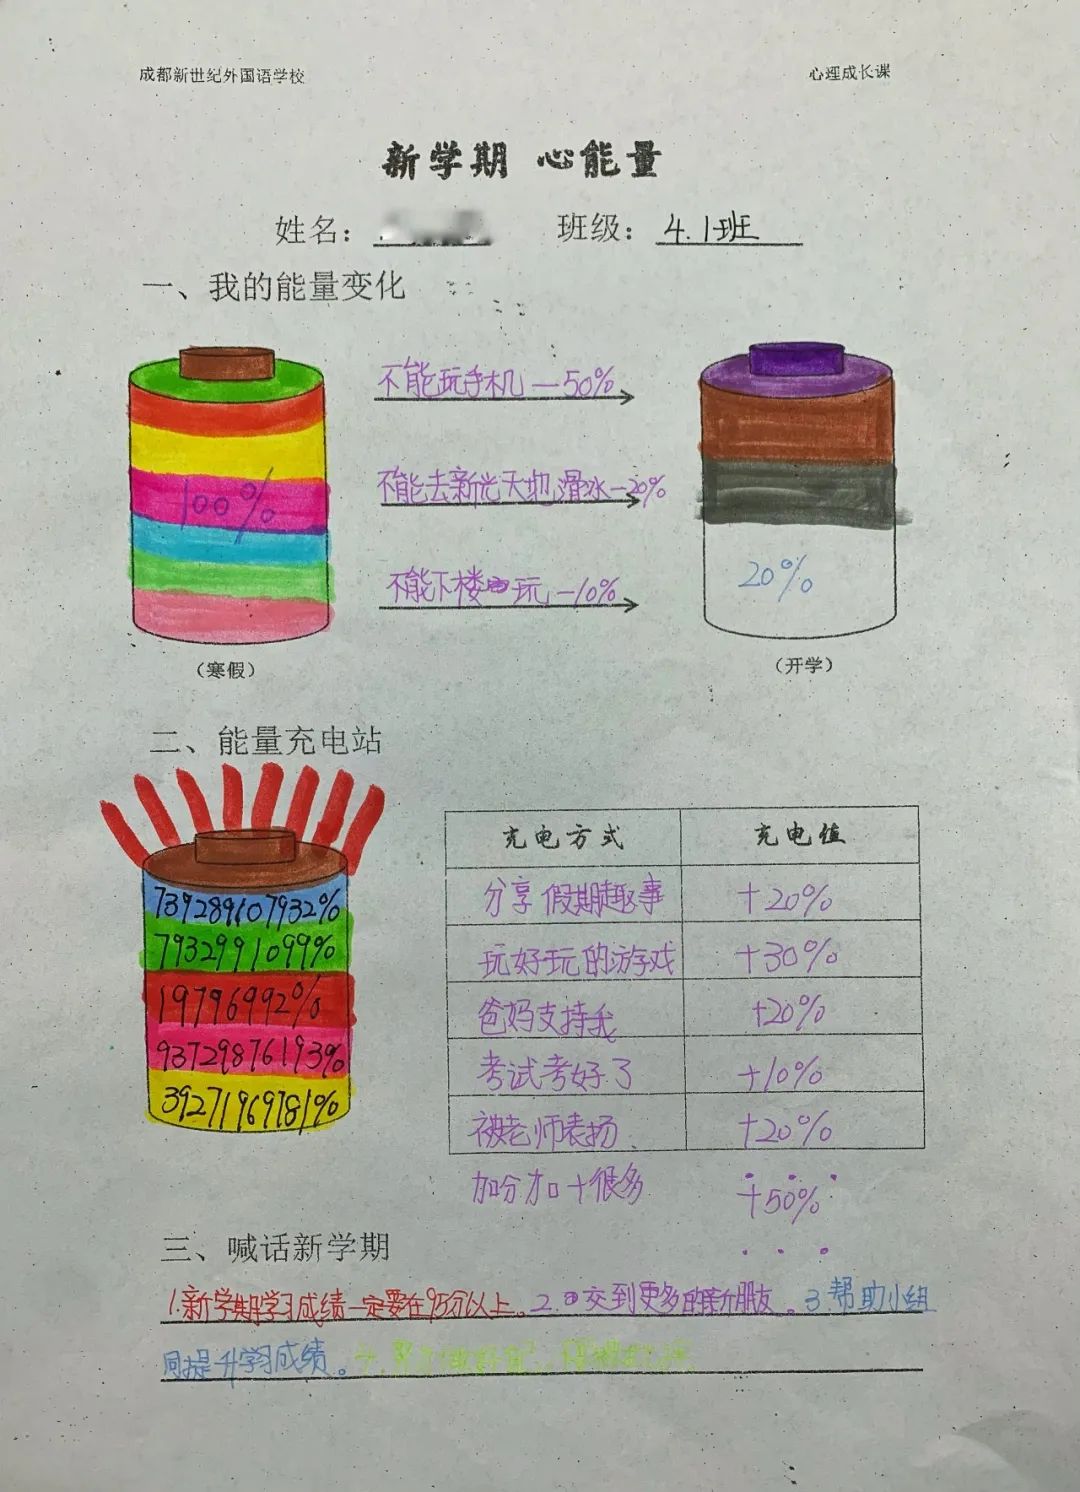 成都新世纪外国语学校 心理成长课
新学期 心能量
姓名： 班级：4.1班
一、我的能量变化
不能玩手机—50%
不能去新光天地滑水—20%
100%
不能下楼玩—10%
20%
（寒假） （开学）
二、能量充电站
充电方式 充电值
739289107932% 分享假期趣事 +20%
7932991099% 玩好玩的游戏 +30%
19796992% 爸妈支持我 +20%
93729876193% 考试考好了 +10%
39271969781% 被老师表扬 +20%
加分加十很多 +50%
三、喊话新学期
1.新学期学习成绩一定要在95分以上。2.交到更多的新朋友。3.帮助小组
同提升学习成绩。